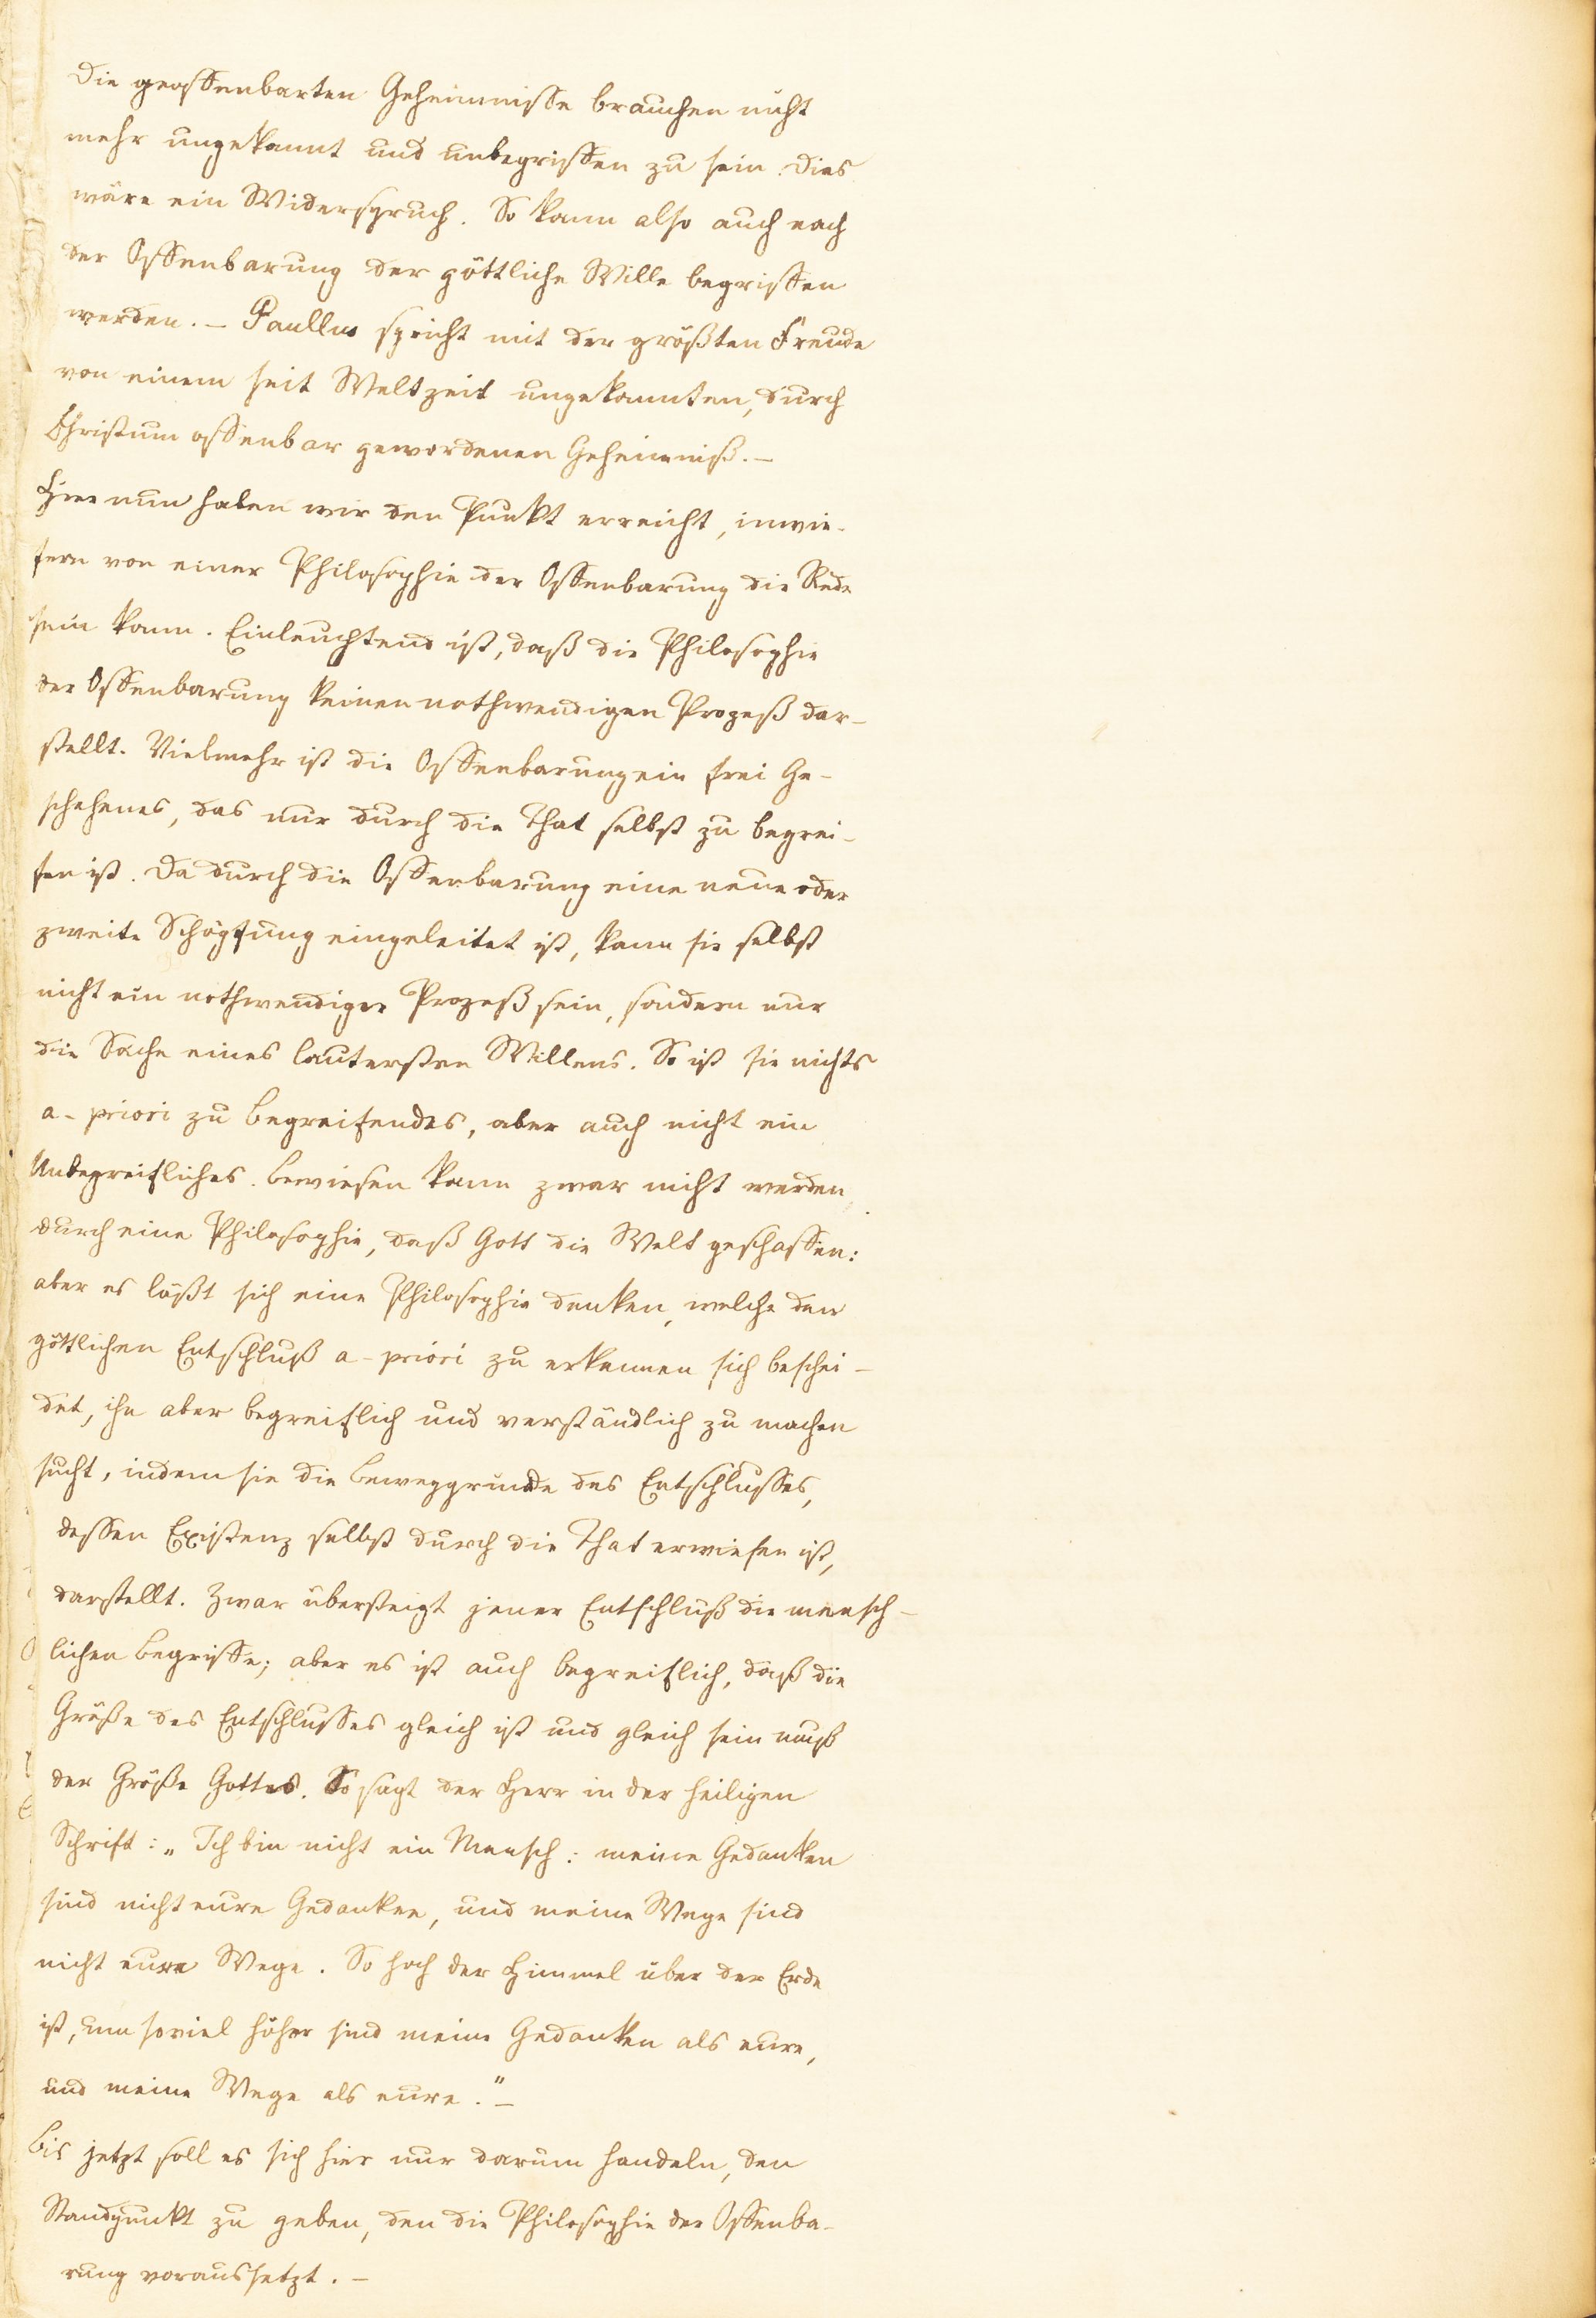 Die geoffenbarten Geheimnisse brauchen nicht
mehr ungekannt und unbegriffen zu sein. Dies
wäre ein Widerspruch. So kann also auch nach
der Offenbarung der göttliche Wille begriffen
werden. – Paullus spricht mit der größten Freude
von einem seit Weltzeit ungekannten, durch
Christum offenbar gewordenen Geheimniß. –
Hier nun haben wir den Punkt erreicht, inwie-
fern von einer Philosophie der Offenbarung die Rede
sein kann. Einleuchtend ist, daß die Philosophie
der Offenbarung keinen nothwendigen Prozeß dar-
stellt. Vielmehr ist die Offenbarung ein frei Ge-
schehenes, das nur durch die That selbst zu begrei-
fen ist. Da durch die Offenbarung eine neue oder
zweite Schöpfung eingeleitet ist, kann sie selbst
nicht ein nothwendiger Prozeß sein, sondern nur
die Sache eines lautersten Willens. So ist sie nichts
a-priori zu Begreifendes, aber auch nicht ein
Unbegreifliches. Bewiesen kann zwar nicht werden
durch eine Philosophie, daß Gott die Welt geschaffen:
aber es läßt sich eine Philosophie denken, welche den
göttlichen Entschluß a-priori zu erkennen sich beschei-
det, ihn aber begreiflich und verständlich zu machen
sucht, indem sie die Beweggründe des Entschlusses,
dessen Existenz selbst durch die That erwiesen ist,
darstellt. Zwar übersteigt jener Entschluß die mensch-
lichen Begriffe; aber es ist auch begreiflich, daß die
Größe des Entschlusses gleich ist und gleich sein muß
der Größe Gottes. So sagt der Herr in der heiligen
Schrift: „Ich bin nicht ein Mensch: meine Gedanken
sind nicht eure Gedanken, und meine Wege sind
nicht eure Wege. So hoch der Himmel über der Erde
ist, um soviel höher sind meine Gedanken als eure,
und meine Wege als eure." –
Bis jetzt soll es sich hier nur darum handeln, den
Standpunkt zu geben, den die Philosophie der Offenba-
rung voraussetzt. –